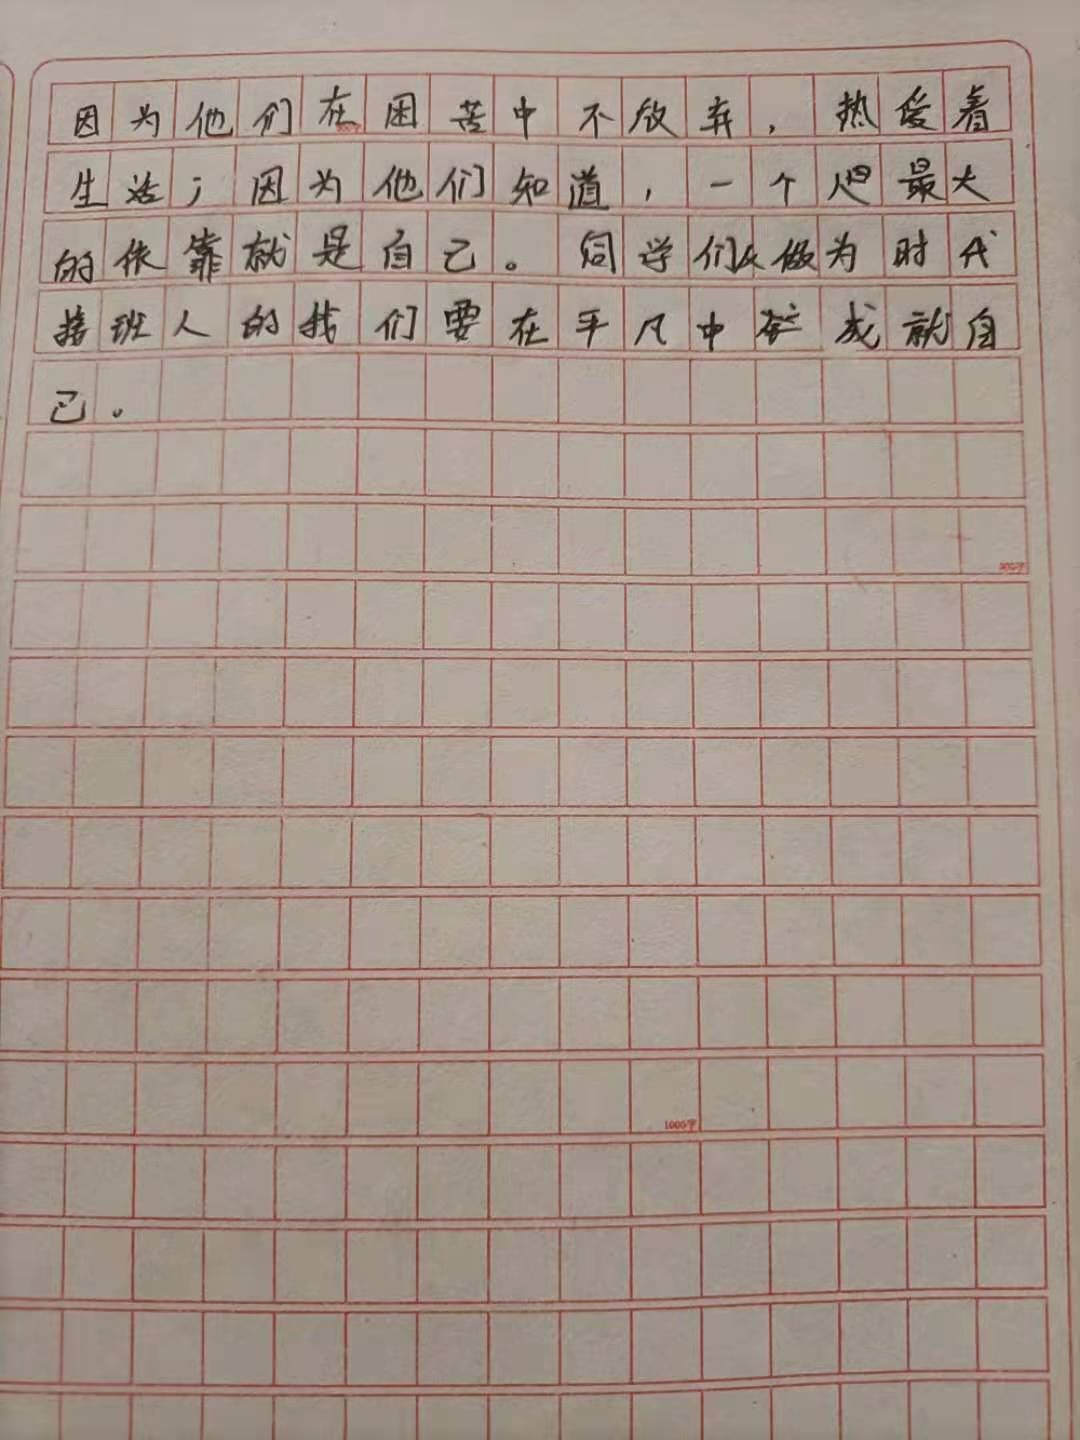 因为他们在困苦中不放弃，热爱着
生活；因为他们知道，一个人最大
的依靠就是自己。同学们做为时代
接班人的我们要在平凡中成就自
己。
1000字